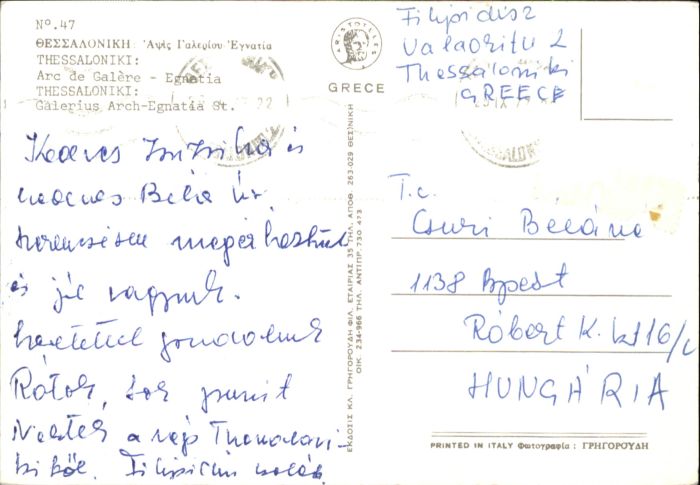 N°. 47
ΘΕΣΣΑΛΟΝΙΚΗ: Ἁψὶς Γαλερίου Ἐγνατία
THESSALONIKI:
Arc de Galère - Egnatia
THESSALONIKI:
Galerius Arch-Egnatia St.
22
Kedves és
kedves Béla
szerencsésen megérkeztünk
és jól vagyunk.
szeretettel gondolunk
Rátok, sok puszit
Nektek a régi Thessaloni-
kiből. Filipidisz
ARISTOTELES
GREECE
ΕΚΔΟΣΙΣ ΚΛ. ΓΡΗΓΟΡΟΥΔΗ ΦΙΛ. ΕΤΑΙΡΙΑΣ 35 ΤΗΛ. ΑΠΟΘ. 263-029 ΘΕΣ)ΝΙΚΗ
ΟΙΚ. 234-966 ΤΗΛ. ΑΝΤΙΠΡ. 730 473
Filipidisz
Valaoritu 2
Thessaloniki
GREECE
T.c.
Csuri Béláné
1138 Bpest
Róbert K. krt 16/c
HUNGÁRIA
PRINTED IN ITALY Φωτογραφία : ΓΡΗΓΟΡΟΥΔΗ